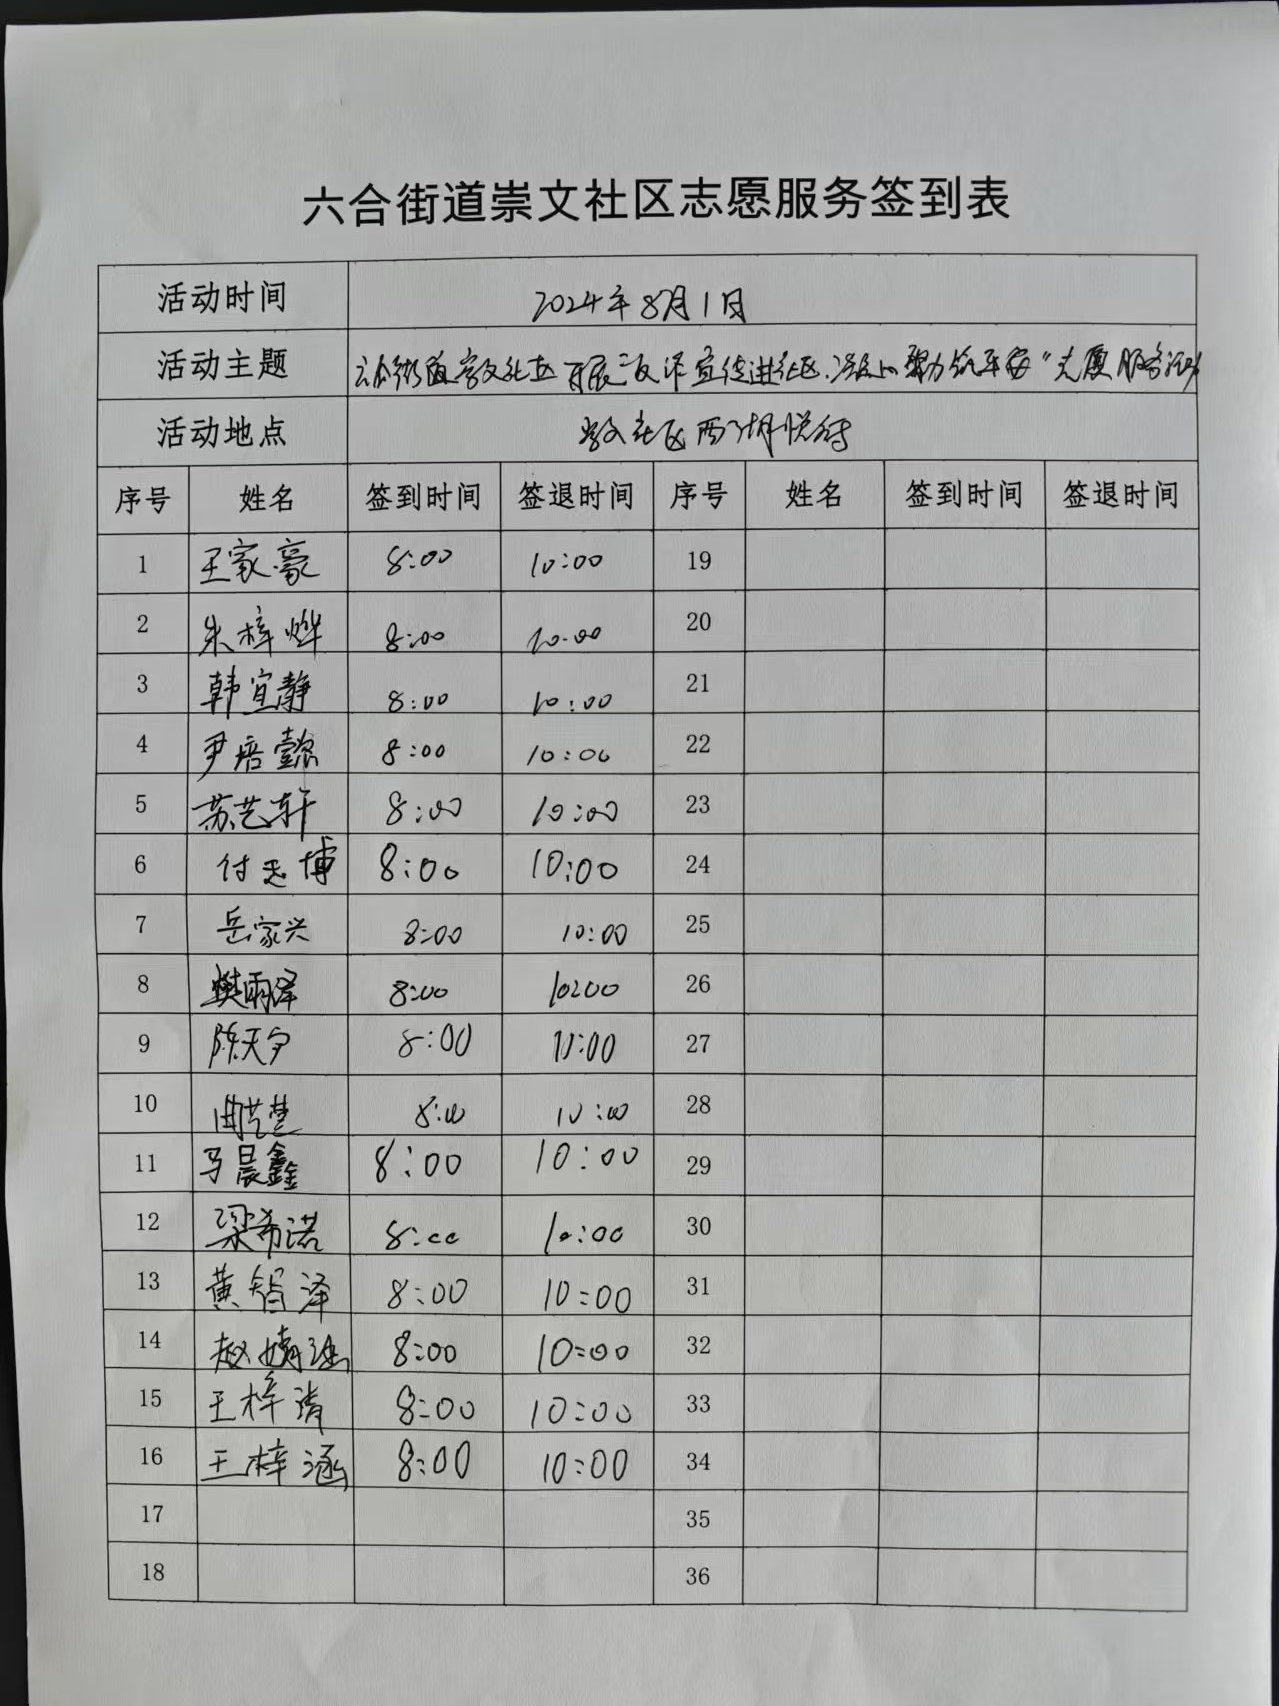 六合街道崇文社区志愿服务签到表
活动时间 2024年8月1日
活动主题 六合街道崇文社区开展"反诈宣传进社区,凝心聚力筑平安"志愿服务活动
活动地点 崇文社区西湖悦府
序号 姓名 签到时间 签退时间 序号 姓名 签到时间 签退时间
1 王家豪 8:00 10:00 19
2 朱梓烨 8:00 10:00 20
3 韩宜静 8:00 10:00 21
4 尹培懿 8:00 10:00 22
5 苏艺轩 8:00 10:00 23
6 付志博 8:00 10:00 24
7 岳家兴 8:00 10:00 25
8 樊雨泽 8:00 10:00 26
9 陈天宇 8:00 10:00 27
10 曲艺 8:00 10:00 28
11 马晨鑫 8:00 10:00 29
12 梁希诺 8:00 10:00 30
13 黄智泽 8:00 10:00 31
14 赵婧涵 8:00 10:00 32
15 王梓清 8:00 10:00 33
16 王梓涵 8:00 10:00 34
17 35
18 36